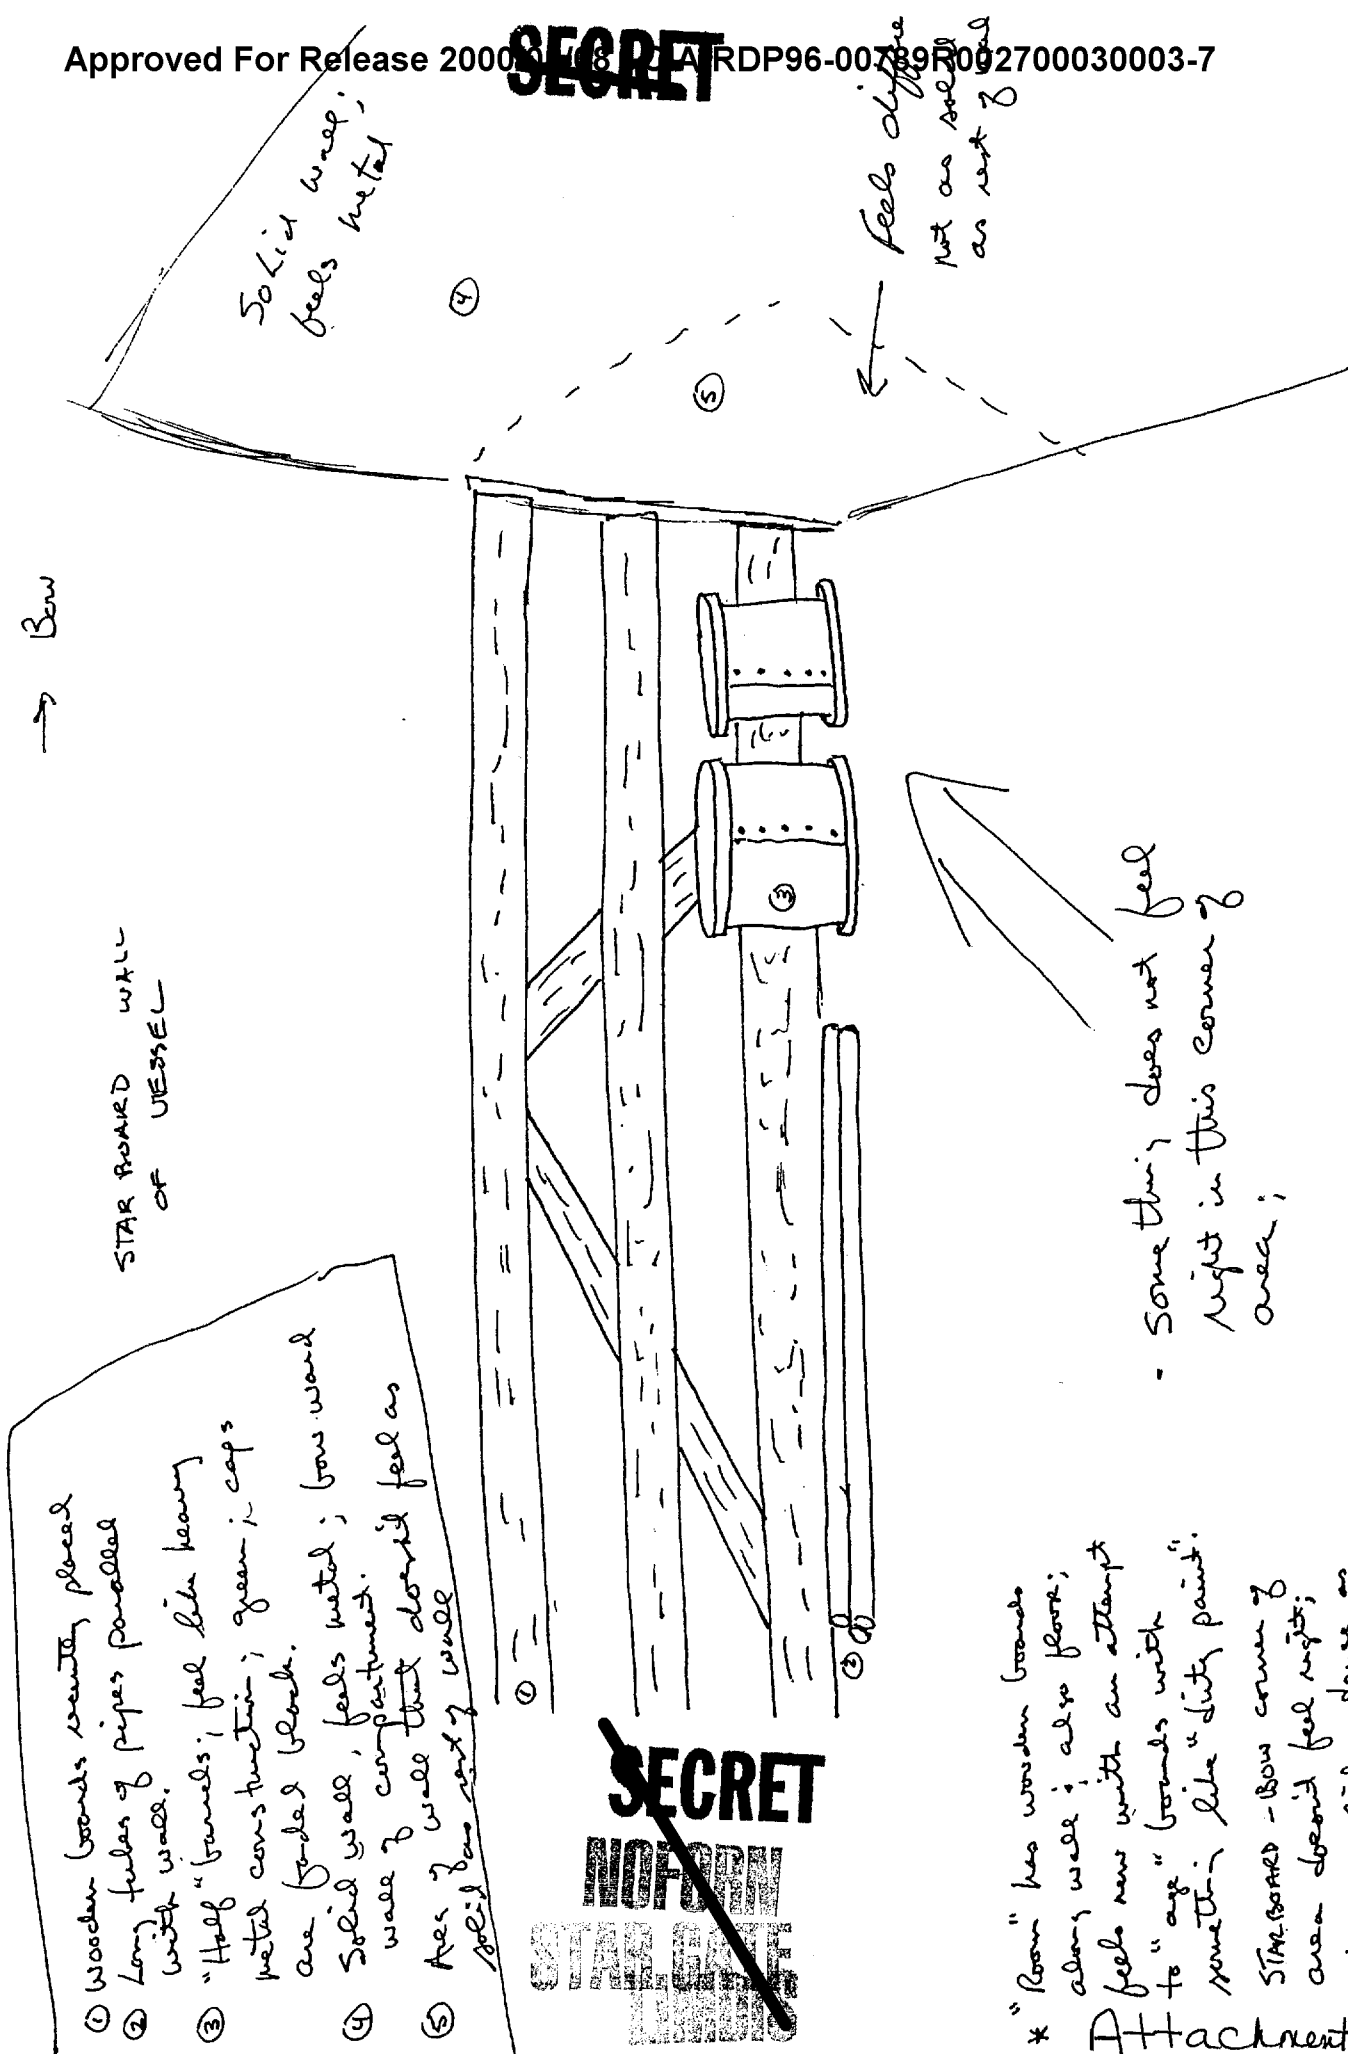 Approved For Release 2000 RDP96-00789R002700030003-7
SECRET
Solid wall;
feels metal
④
Feels
not as solid
as rest of
⑤
→ Bow
STARBOARD WALL
OF VESSEL
③
- Something does not feel
right in this corner of
area;
① Wooden boards recently placed
② Long tubes of pipes parallel
with wall.
③ "Half" barrels; feel like heavy
metal construction; green; caps
are faded black.
④ Solid wall, feels metal; bow-ward
wall of compartment.
⑤ Area of wall that doesn't feel as
solid as rest of wall
①
②
SECRET
NOFORN
STAR GATE
LIMDIS
* "Room" has wooden boards
along wall; also floor;
feels new with an attempt
to "age" boards with
something like "dirty paint".
STARBOARD - BOW corner of
area doesn't feel right;
Attachment